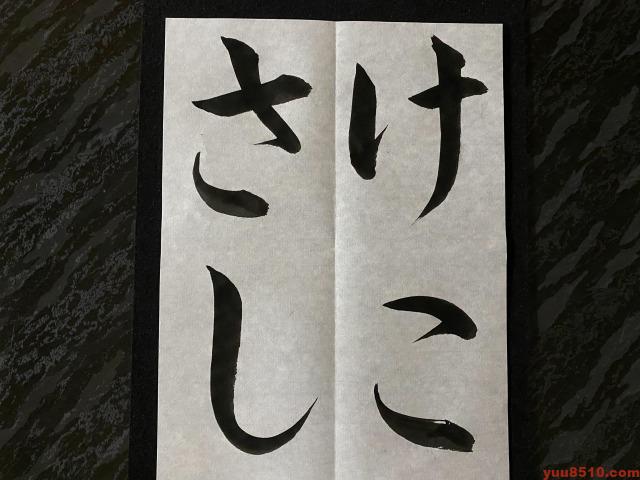 けこ
さし
yuu8510.com